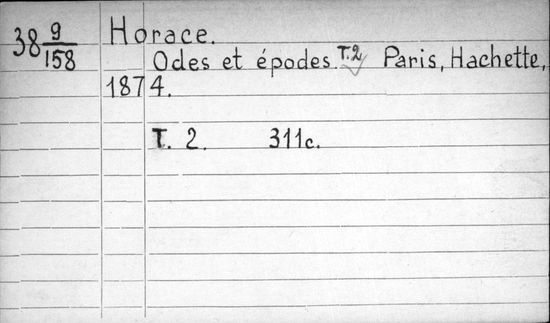 38 9/158
Horace.
Odes et épodes. T.2 Paris, Hachette,
1874.
T. 2. 311c.